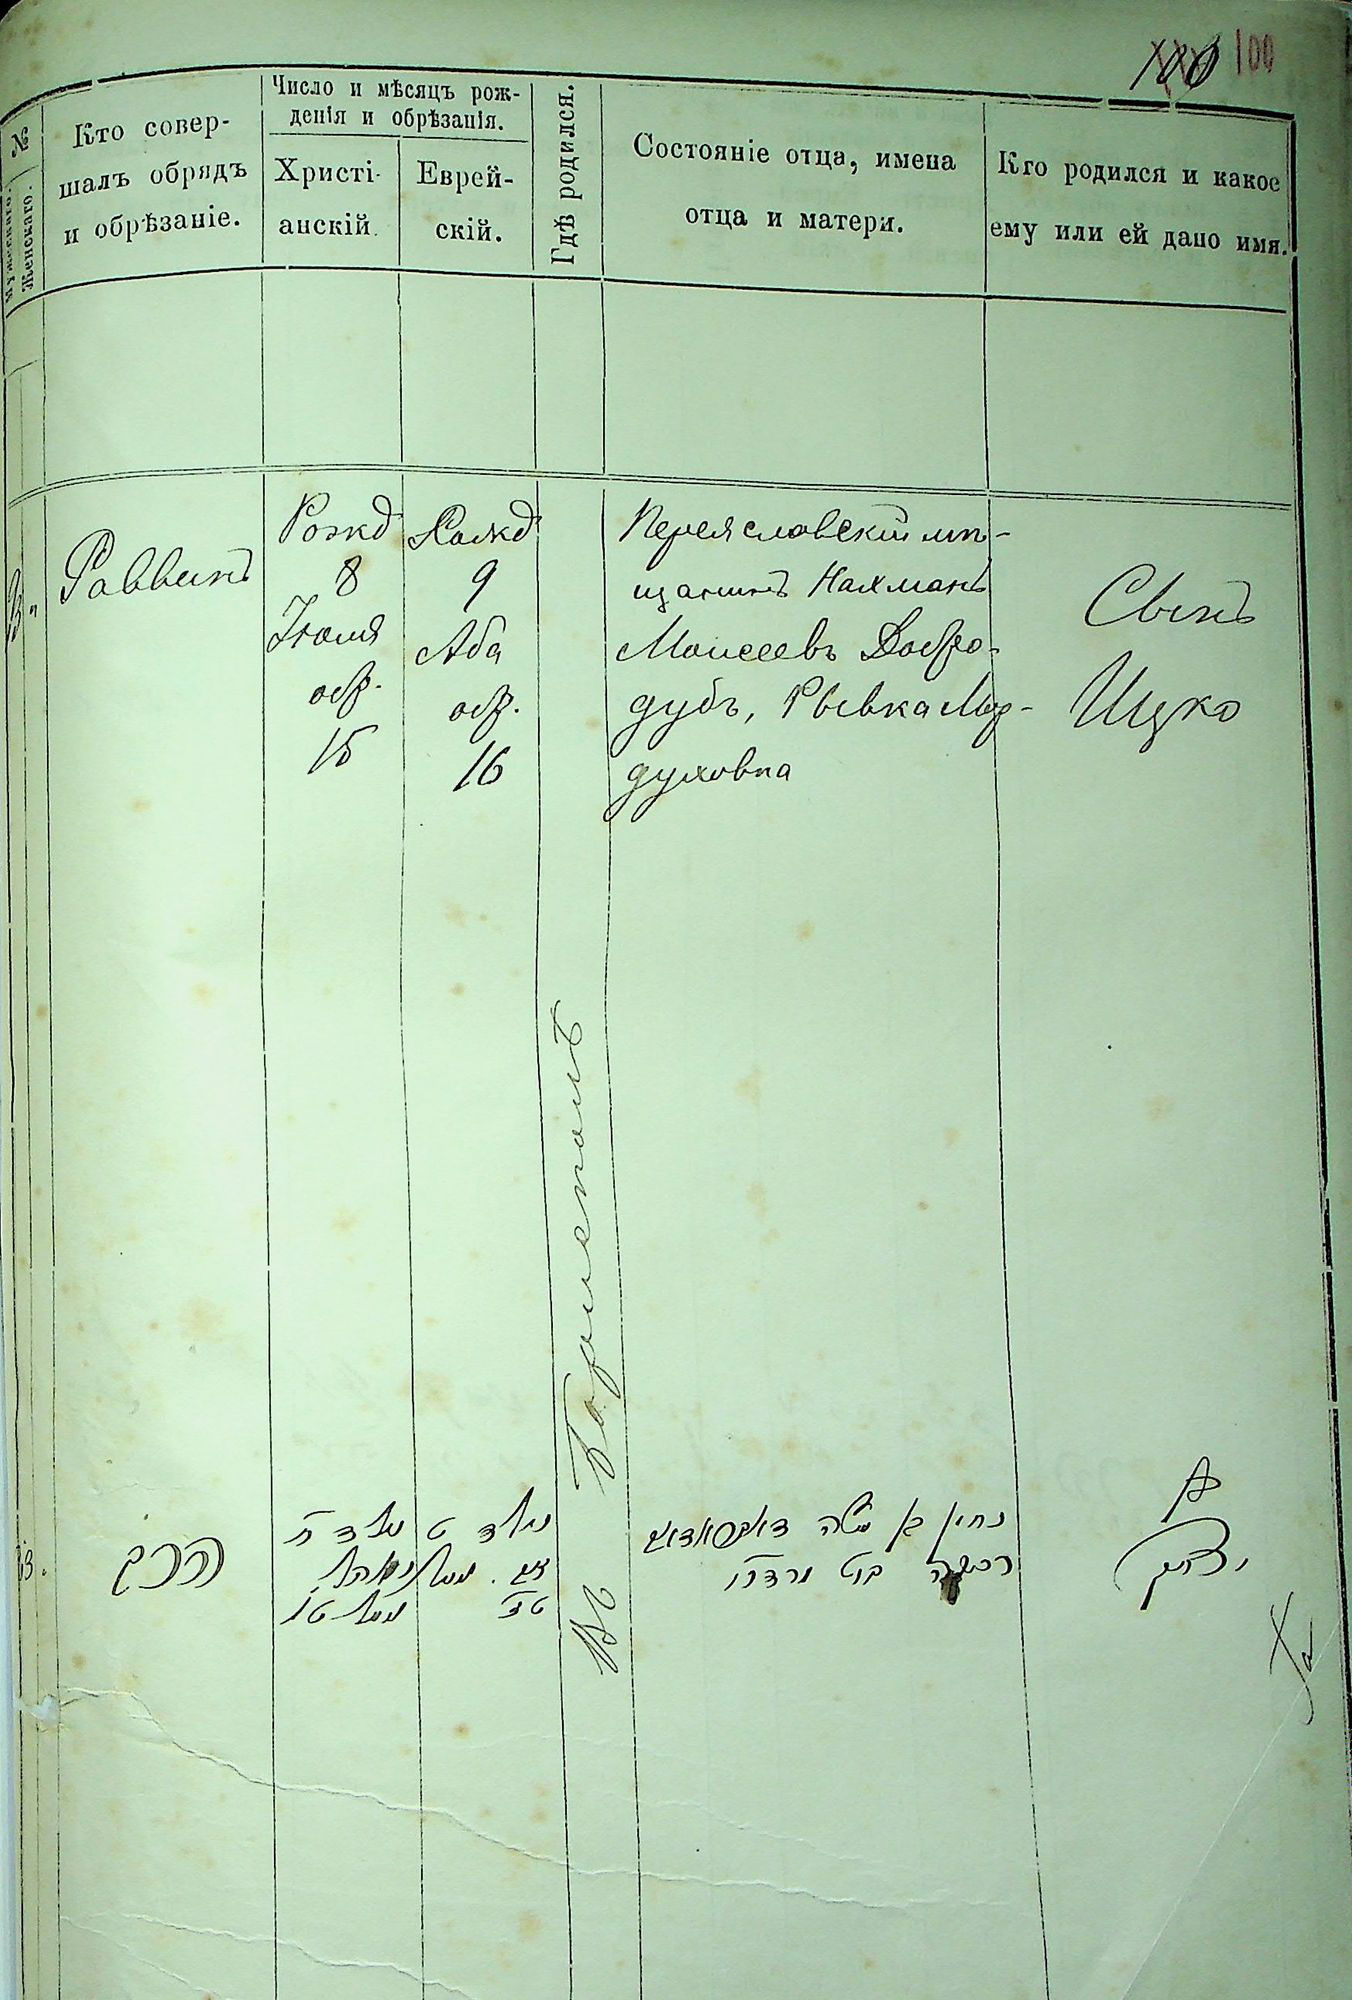 100 100
№
Мужескаго.
Женскаго.
Кто совер-
шалъ обрядъ
и обрѣзаніе.
Число и мѣсяцъ рож-
денія и обрѣзанія.
Христі-
анскій.
Еврей-
скій.
Гдѣ родился.
Состояніе отца, имена
отца и матери.
Кто родился и какое
ему или ей дано имя.
Раввинъ
Рожд
8
Іюля
обр.
15
Рожд
9
Аба
обр.
16
Въ Борисполѣ
Переяславскій мѣ-
щанинъ Нахманъ
Моисеевъ Добро-
дубъ, Рывка Мор-
духовна
Сынъ
Ицко
הרב
נולד ח
נולד ט
נחמן בן משה
רבקה בת מרדכי
בן
יצחק